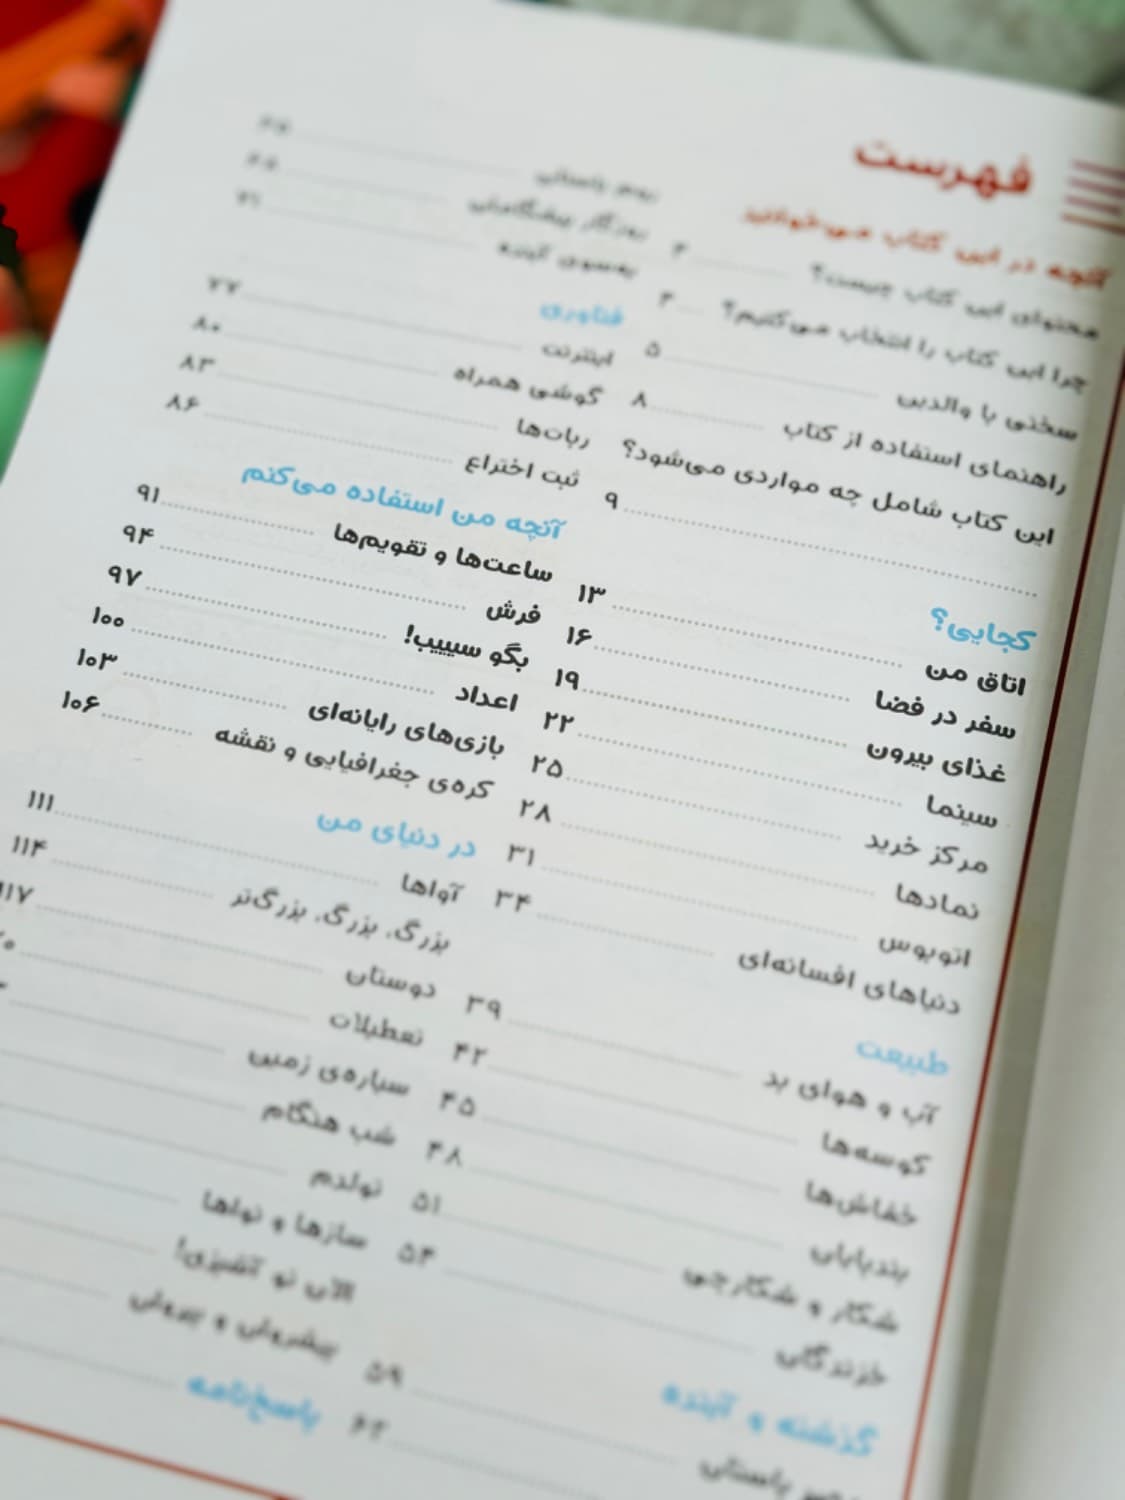 فهرست
آنچه در این کتاب می‌خوانیم
محتوای این کتاب چیست؟ ۲
چرا این کتاب را انتخاب می‌کنیم؟ ۳
سخنی با والدین ۵
راهنمای استفاده از کتاب ۸
این کتاب شامل چه مواردی می‌شود؟
۹
کجایی؟
اتاق من ۱۳
سفر در فضا ۱۶
غذای بیرون ۱۹
سینما ۲۲
مرکز خرید ۲۵
نمادها ۲۸
اتوبوس ۳۱
دنیاهای افسانه‌ای ۳۴
طبیعت
آب و هوای بد ۳۹
کوسه‌ها ۴۲
خفاش‌ها ۴۵
بندپایان ۴۸
شکار و شکارچی ۵۱
خزندگان ۵۴
گذشته و آینده
باستان ۵۹
۶۲
روم باستان ۶۵
روزگار پیشگامان ۶۸
به‌سوی آینده ۷۱
فناوری
اینترنت ۷۷
گوشی همراه ۸۰
ربات‌ها ۸۳
ثبت اختراع ۸۶
آنچه من استفاده می‌کنم
ساعت‌ها و تقویم‌ها ۹۱
فرش ۹۴
بگو سیییب! ۹۷
اعداد ۱۰۰
بازی‌های رایانه‌ای ۱۰۳
کره‌ی جغرافیایی و نقشه ۱۰۶
در دنیای من
آواها ۱۱۱
بزرگ، بزرگ‌تر ۱۱۴
دوستان ۱۱۷
تعطیلات
سیاره‌ی زمین
شب هنگام
تولدم
سازها و نواها
الان تو آشپزی!
پیشروان و پیروان
پاسخ‌نامه